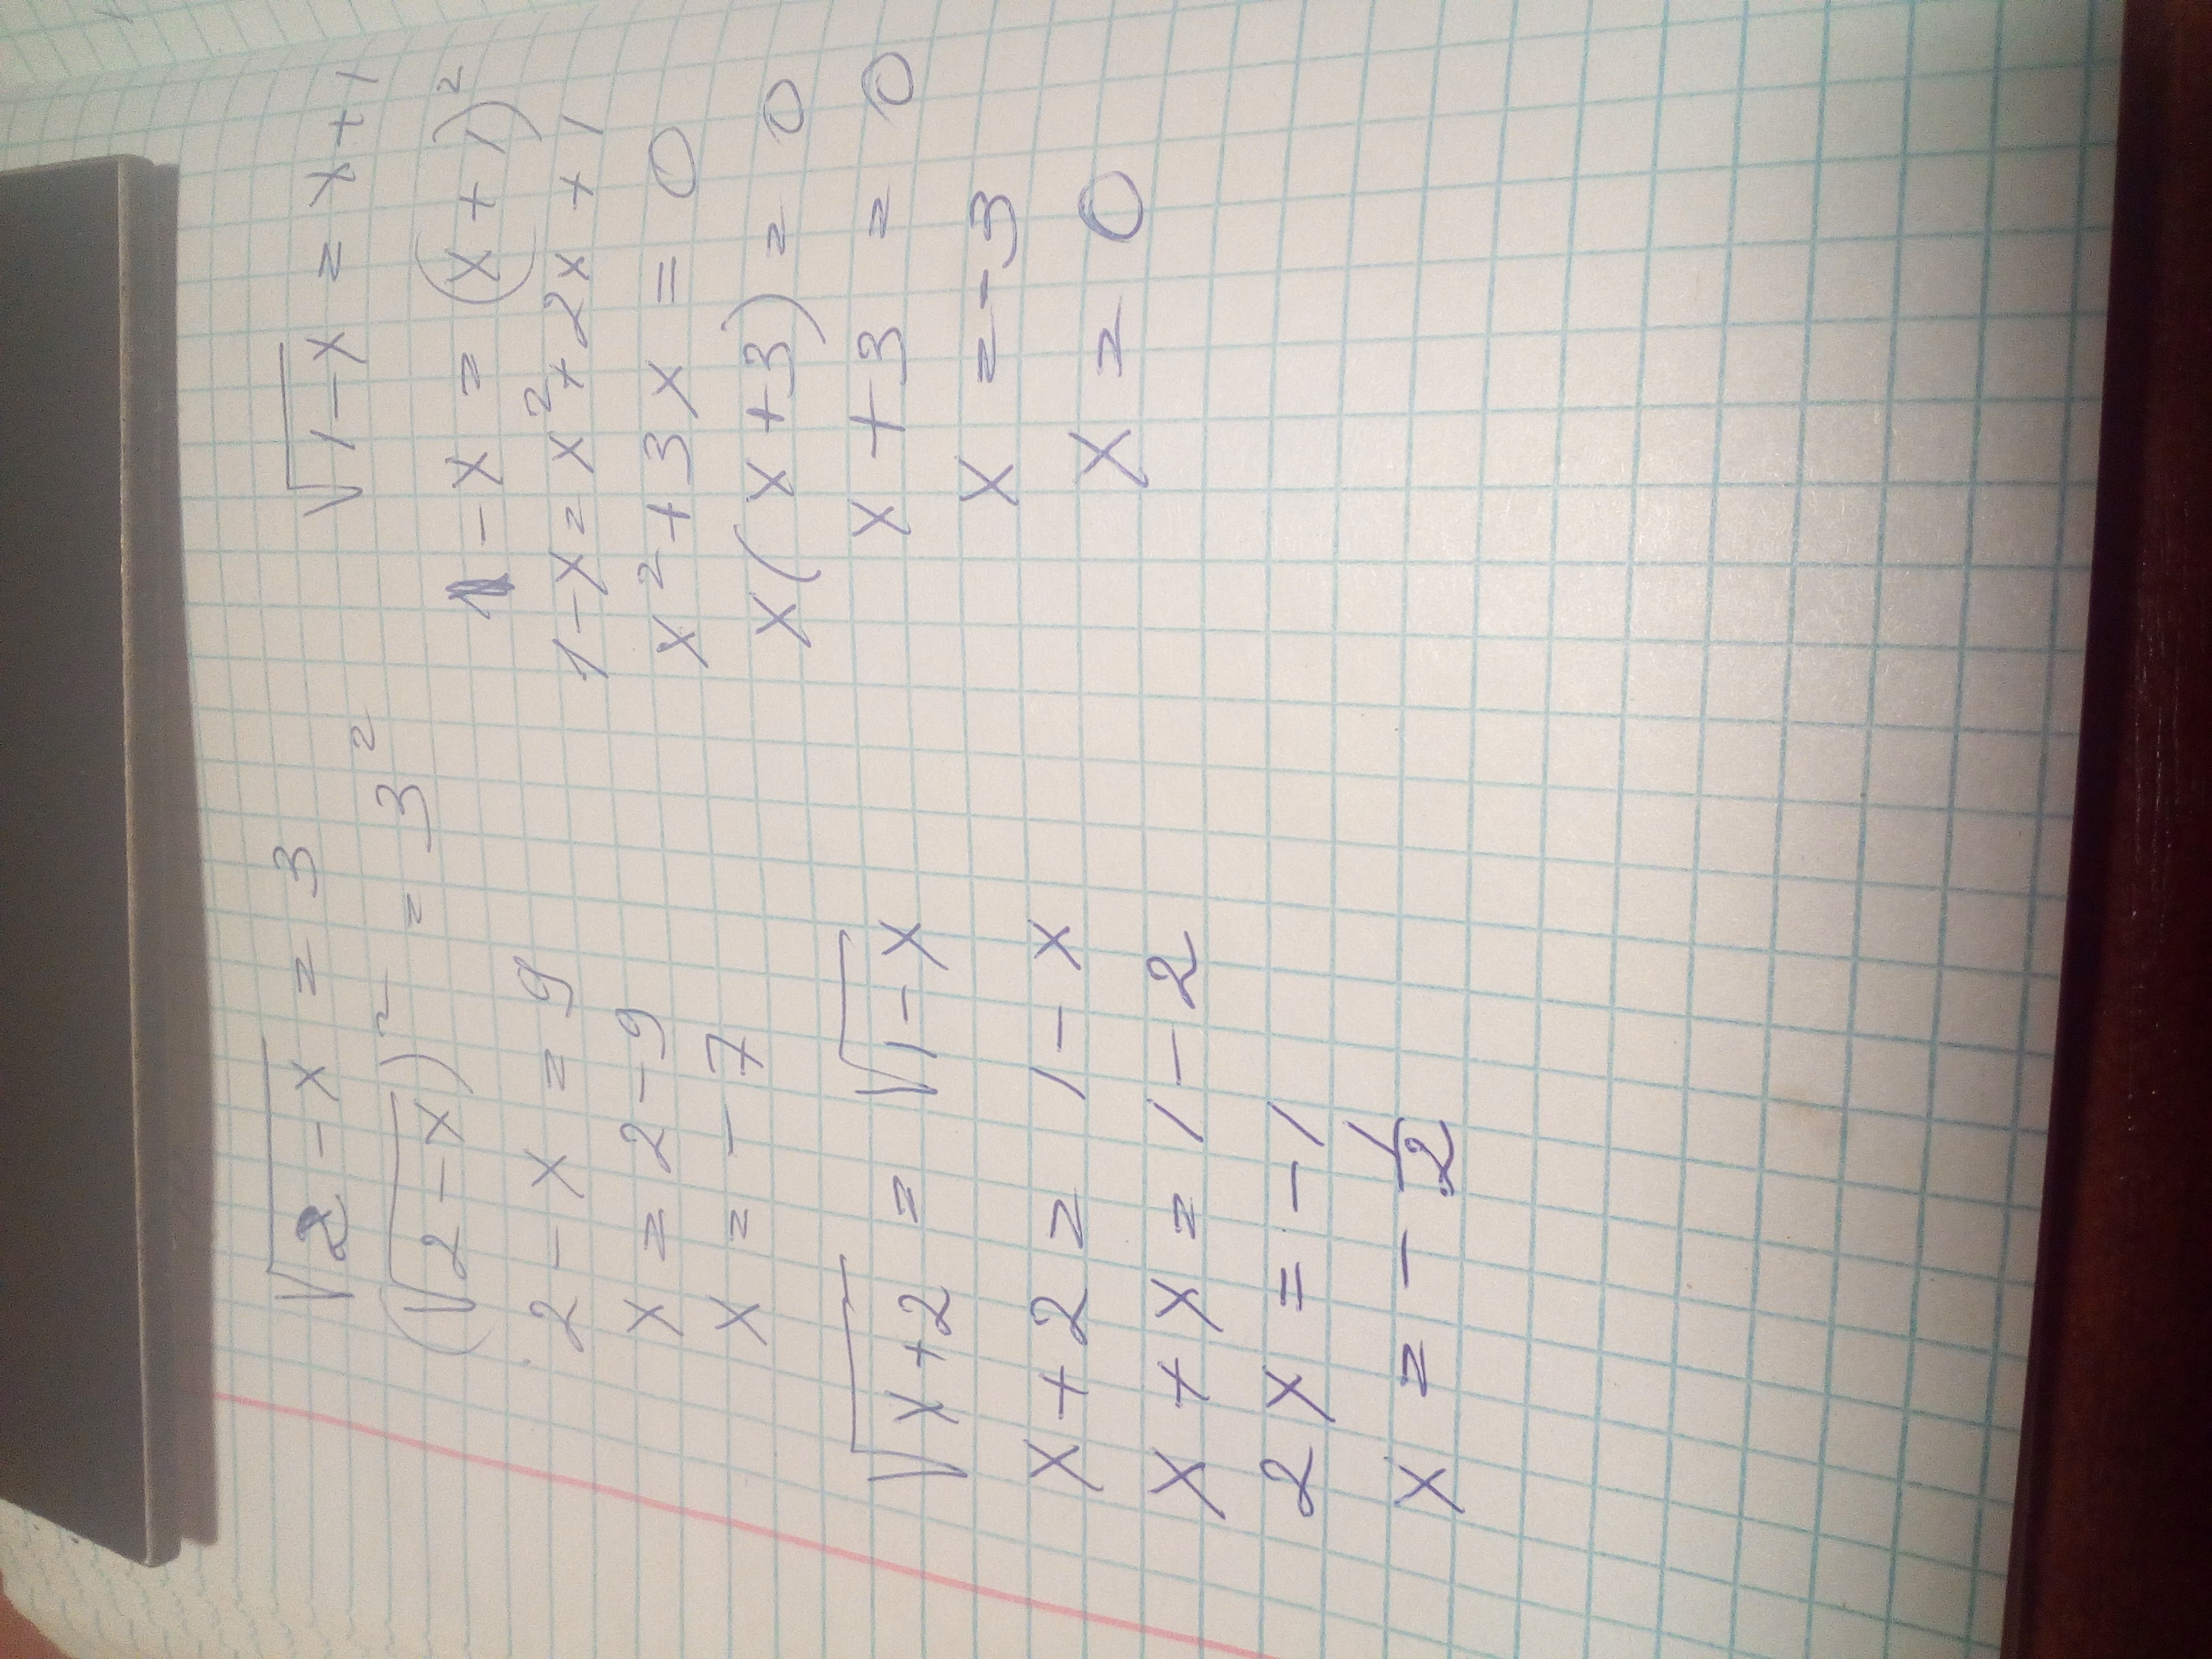 √2-x = 3
(√2-x)² = 3²
2-x = 9
x = 2-9
x = -7
√x+2 = √1-x
x+2 = 1-x
x+x = 1-2
2x = -1
x = -1/2
√1-x = x+1
1-x = (x+1)²
1-x = x²+2x+1
x²+3x = 0
x(x+3) = 0
x+3 = 0
x = -3
x = 0